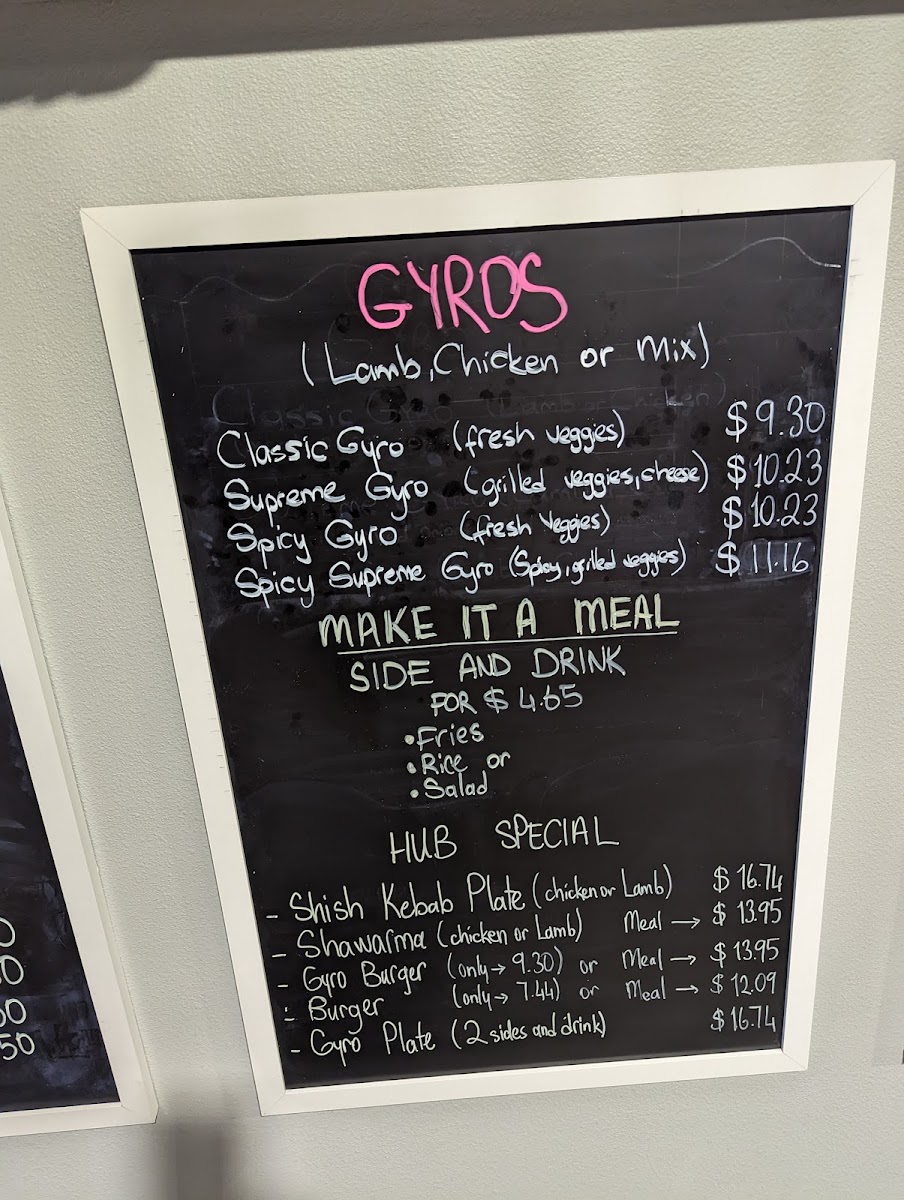 GYROS
(Lamb, Chicken or Mix)
Classic Gyro (fresh veggies) $9.30
Supreme Gyro (grilled veggies, cheese) $10.23
Spicy Gyro (fresh veggies) $10.23
Spicy Supreme Gyro (Spicy, grilled veggies) $11.16
MAKE IT A MEAL
SIDE AND DRINK
FOR $4.65
• Fries
• Rice or
• Salad
HUB SPECIAL
- Shish Kebab Plate (chicken or Lamb) $16.74
- Shawarma (chicken or Lamb) Meal → $13.95
- Gyro Burger (only → 9.30) or Meal → $13.95
- Burger (only → 7.44) or Meal → $12.09
- Gyro Plate (2 sides and drink) $16.74